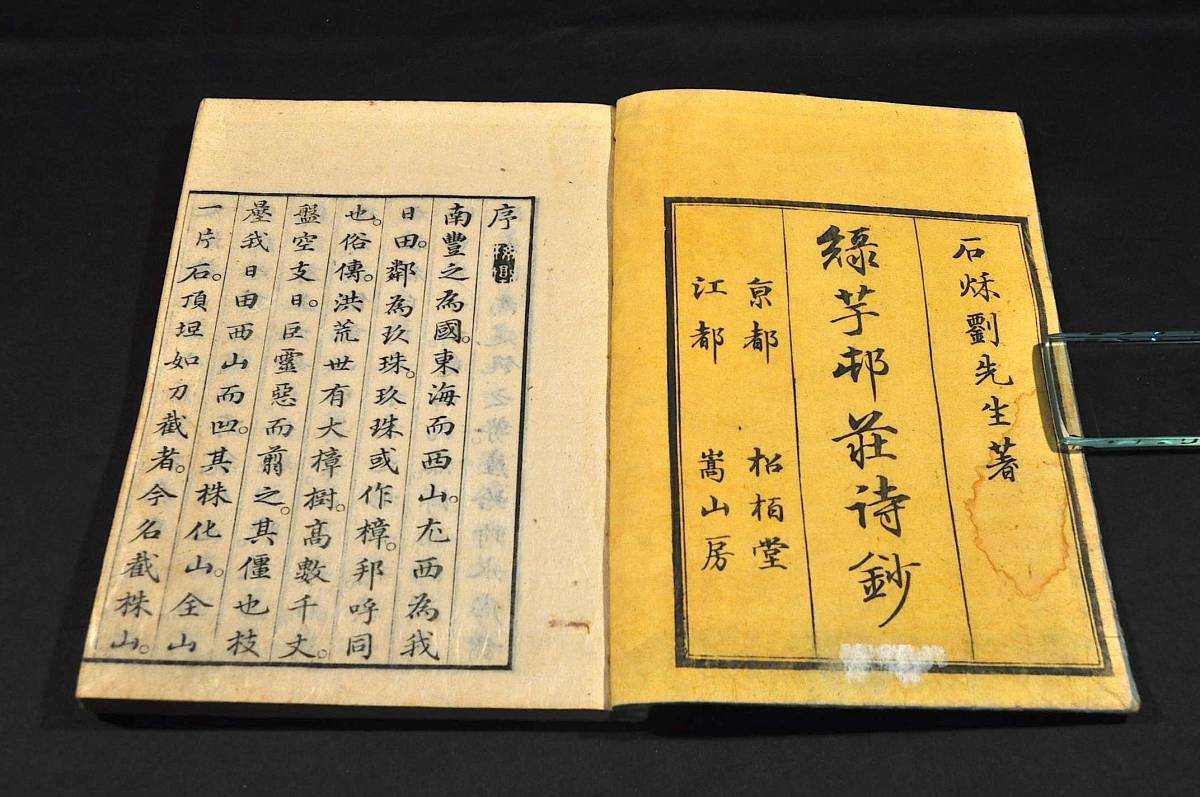 石烁劉先生著
綠芋邨莊詩鈔
京都 松栢堂
江都 嵩山房
序
南豐之為國。東海而西山。尤西為我
日田。鄰為玖珠。玖珠或作樟。邦呼同
也。俗傳。洪荒世有大樟樹。高數千丈。
盤空支日。巨靈惡而剪之。其僵也枝
壘我日田西山而凹。其株化山。全山
一片石。頂坦如刀截者。今名截株山。